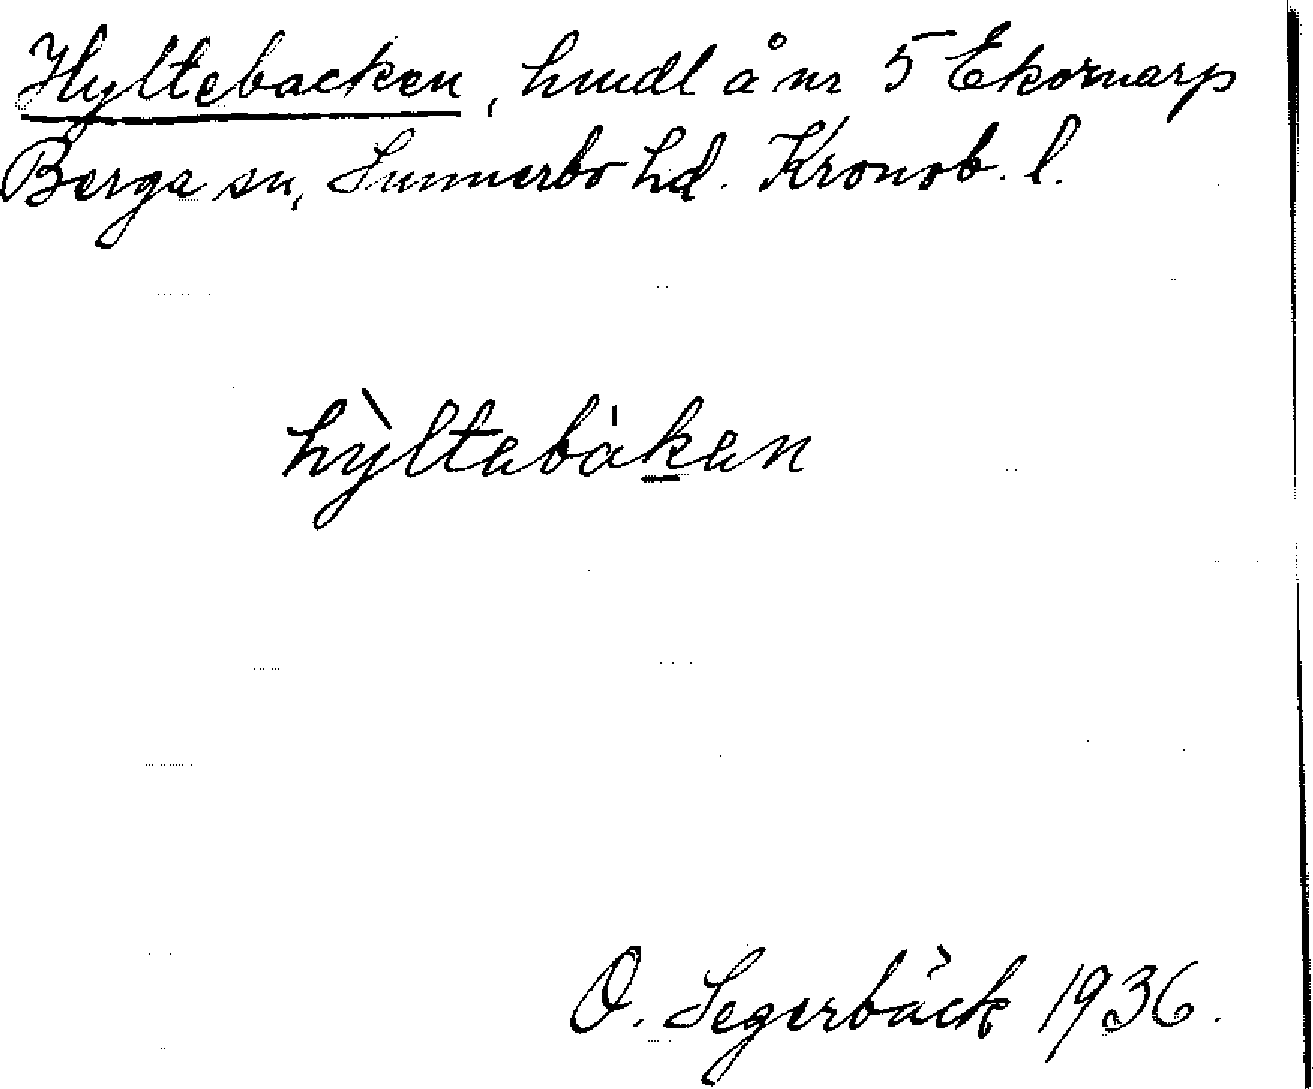 Hyltebacken, hmdl å nr 5 Ekornarp
Berga sn, Sunnerbo hd. Kronob. l.
hỳltabákan
O. Segerbäck 1936.